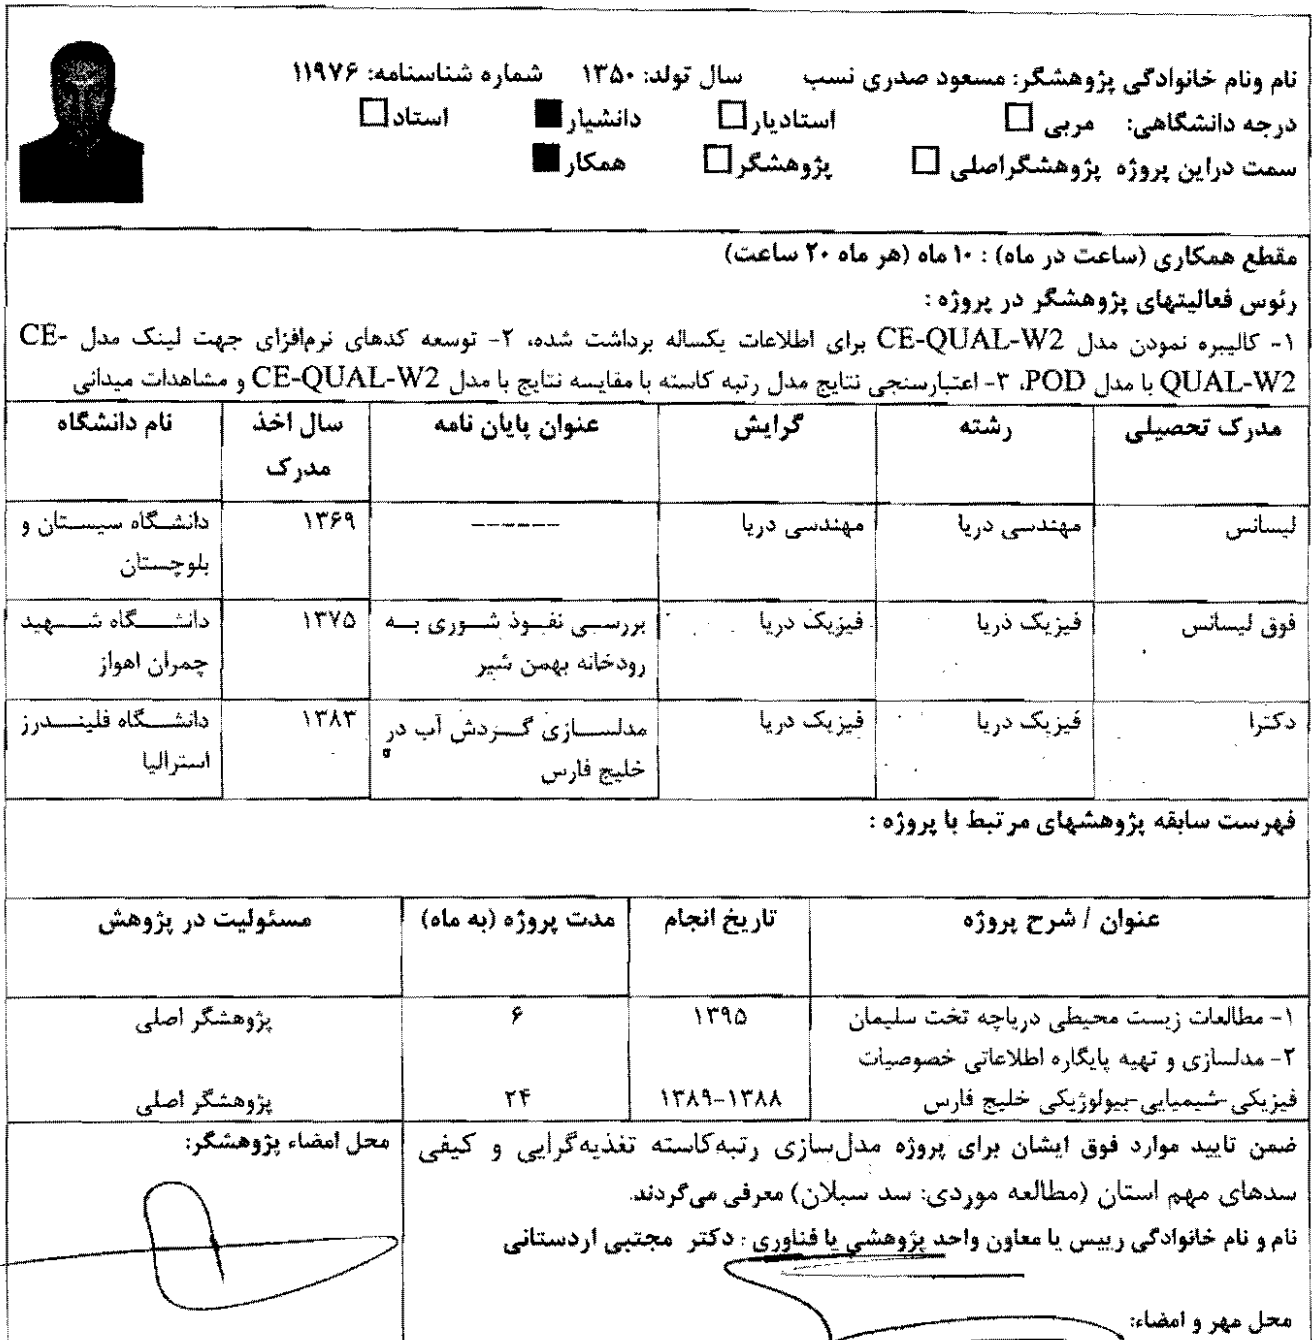 نام ونام خانوادگی پژوهشگر: مسعود صدری نسب سال تولد: ۱۳۵۰ شماره شناسنامه: ۱۱۹۷۶
درجه دانشگاهی: مربی ☐ استادیار ☐ دانشیار ■ استاد ☐
سمت دراین پروژه پژوهشگراصلی ☐ پژوهشگر ☐ همکار ■
مقطع همکاری (ساعت در ماه) : ۱۰ ماه (هر ماه ۲۰ ساعت)
رئوس فعالیتهای پژوهشگر در پروژه :
۱- کالیبره نمودن مدل CE-QUAL-W2 برای اطلاعات یکساله برداشت شده، ۲- توسعه کدهای نرم‌افزای جهت لینک مدل CE-
QUAL-W2 با مدل POD، ۳- اعتبارسنجی نتایج مدل رتبه کاسته با مقایسه نتایج با مدل CE-QUAL-W2 و مشاهدات میدانی
مدرک تحصیلی رشته گرایش عنوان پایان نامه سال اخذ نام دانشگاه
مدرک
لیسانس مهندسی دریا مهندسی دریا ------ ۱۳۶۹ دانشگاه سیستان و
بلوچستان
فوق لیسانس فیزیک دریا فیزیک دریا بررسی نفوذ شوری به ۱۳۷۵ دانشگاه شهید
رودخانه بهمن شیر چمران اهواز
دکترا فیزیک دریا فیزیک دریا مدلسازی گردش آب در ۱۳۸۳ دانشگاه فلیندرز
خلیج فارس استرالیا
فهرست سابقه پژوهشهای مرتبط با پروژه :
عنوان / شرح پروژه تاریخ انجام مدت پروژه (به ماه) مسئولیت در پژوهش
۱- مطالعات زیست محیطی دریاچه تخت سلیمان ۱۳۹۵ ۶ پژوهشگر اصلی
۲- مدلسازی و تهیه پایگاره اطلاعاتی خصوصیات
فیزیکی-شیمیایی-بیولوژیکی خلیج فارس ۱۳۸۸-۱۳۸۹ ۲۴ پژوهشگر اصلی
ضمن تایید موارد فوق ایشان برای پروژه مدل‌سازی رتبه‌کاسته تغذیه‌گرایی و کیفی
سدهای مهم استان (مطالعه موردی: سد سبلان) معرفی می‌گردند.
نام و نام خانوادگی رییس یا معاون واحد پژوهشی یا فناوری : دکتر مجتبی اردستانی
محل مهر و امضاء:
محل امضاء پژوهشگر: